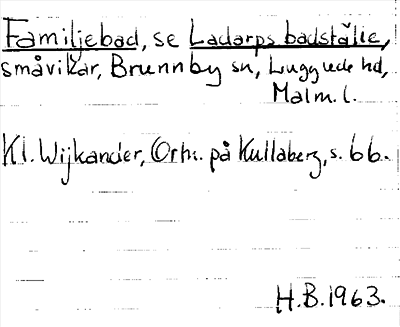 Familjebad, se Ladarps badställe,
småvikar, Brunnby sn, Luggude hd,
Malm. l.
Kl. Wijkander, Ortn. på Kullaberg, s. 66.
H.B. 1963.